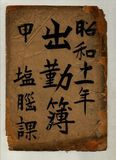 昭和十一年
出勤簿
甲 塩脳課